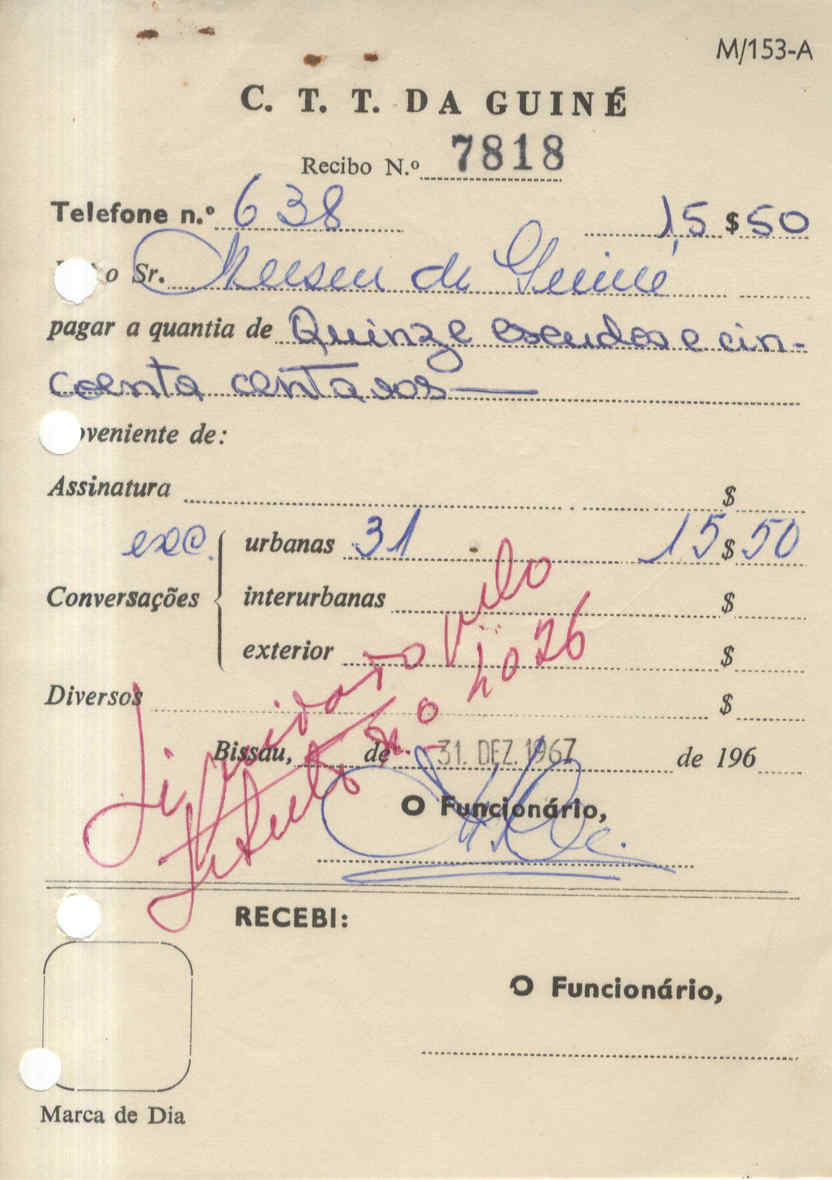 M/153-A
C. T. T. DA GUINÉ
Recibo N.º 7818
Telefone n.º 638 15$50
o Sr. Museu da Guiné
pagar a quantia de Quinze escudos e cin-
coenta centavos
veniente de:
Assinatura $
exc. urbanas 31 15$50
Conversações interurbanas $
exterior $
Diversos $
Liquidado pelo
título n.o 2026
Bissau, de 31. DEZ. 1967 de 196
O Funcionário,
RECEBI:
O Funcionário,
Marca de Dia